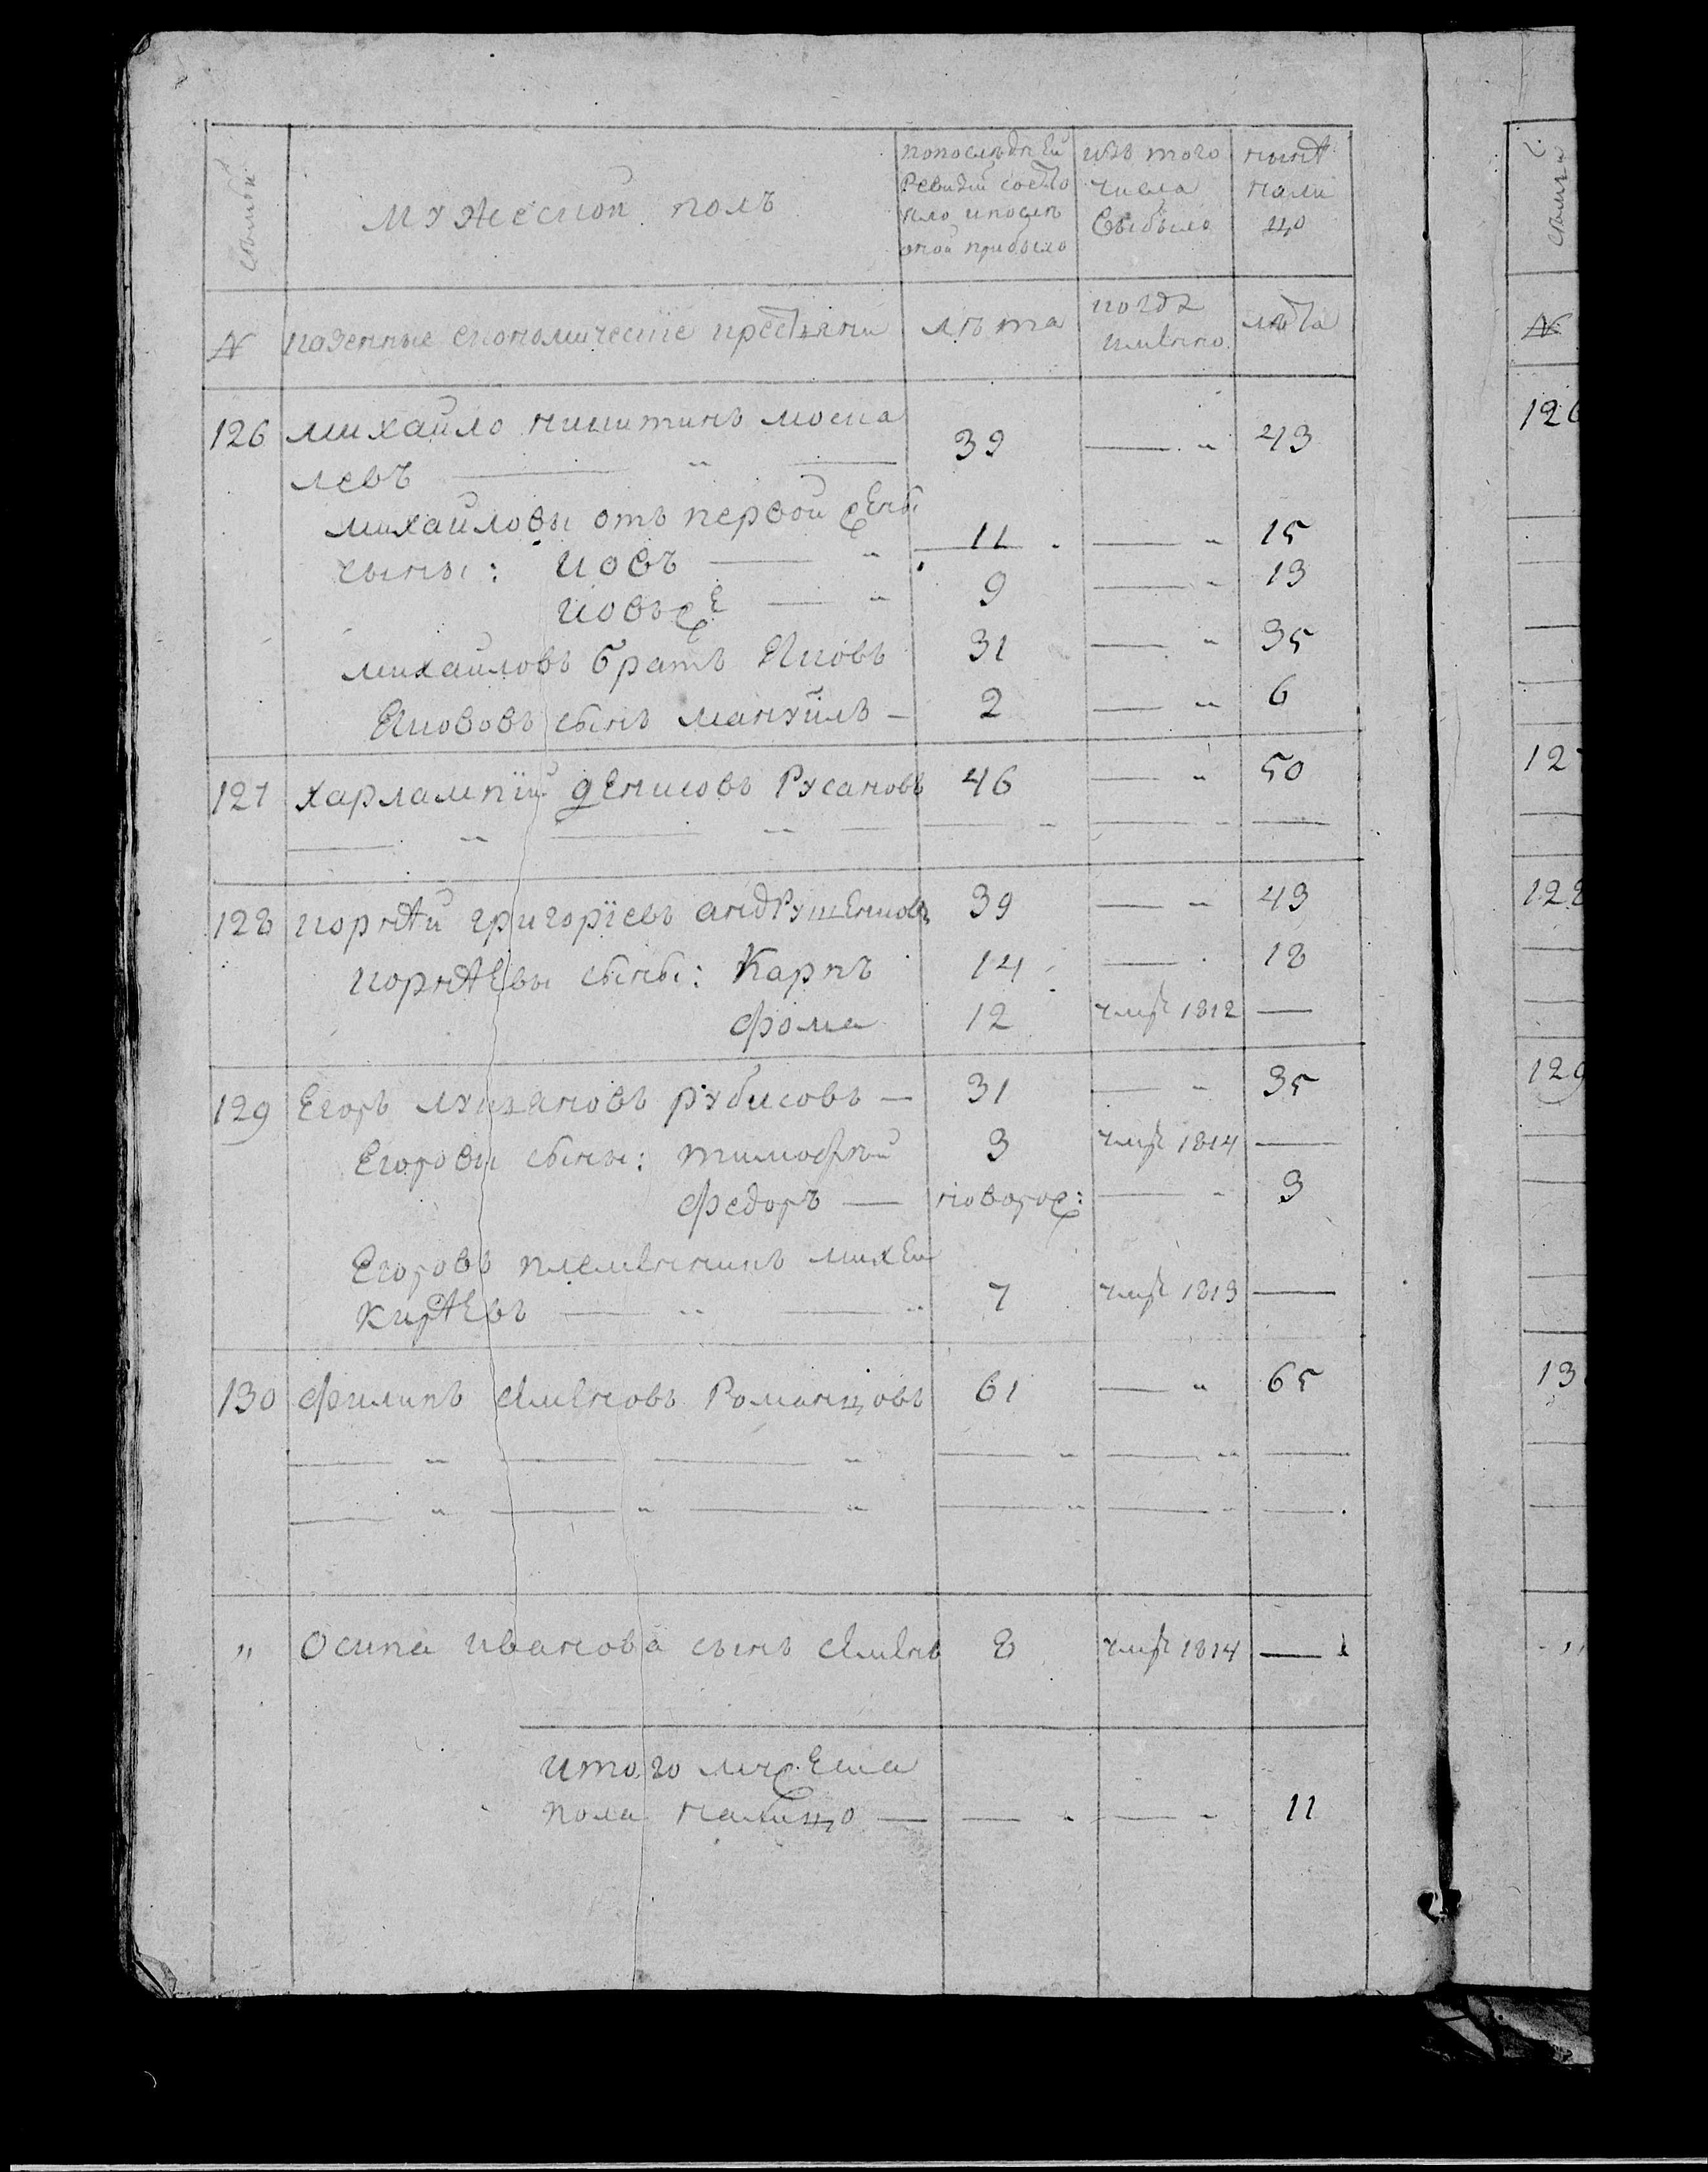 семьи
мужеской полъ
попоследней ревизiи состо яло ипосле оной прибыло
изъ того числа выбыло
ныне нали цо
N казенные економическiе крестьяни лета когда имянно лета
126 михайло никитинъ моска 39 — 43
левъ
михайловы отъ первой жены
сыны: иовъ 11 — 15
иовъже 9 — 13
михайловъ братъ яковъ 31 — 35
якововъ сынъ мануилъ — 2 — 6
127 харлампiй денисовъ русановъ 46 — 50
128 корнѣй григорiевъ андрушенковъ 39 — 43
корнѣевы сыны: карпъ 14 — 18
фома 12 умре 1812 —
129 егоръ лукяновъ рубисовъ — 31 — 35
егоровы сыны: тимофей 3 умре 1814 —
федоръ — новорож: — 3
егоровъ племянникъ михей
кирѣевъ 7 умре 1813 —
130 филипъ омяновъ романцовъ 61 — 65
" осипа иванова сынъ 8 умре 1814 —
итого мужеска
пола налицо — — — 11
семьи
N
126
127
128
129
13
"